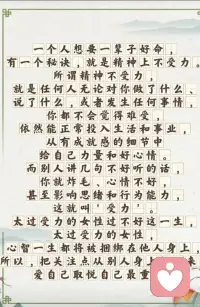 一个人想要一辈子好命，
有一个秘诀，就是精神上不受力。
所谓精神不受力，
就是任何人无论对你做了什么、
说了什么，或者发生任何事情，
你都不会觉得难受，
依然能正常投入生活和事业，
从有成就感的细节中
给自己力量和好心情。
而别人讲几句不好听的话，
你就炸毛、心情不好，
甚至影响思绪和行为能力，
这就叫‘受力’。
太过受力的女性过不好这一生，
太过受力的女性，
心智一生都将被捆绑在他人身上，
所以，把关注点从别人身上 来
爱自己取悦自己最重